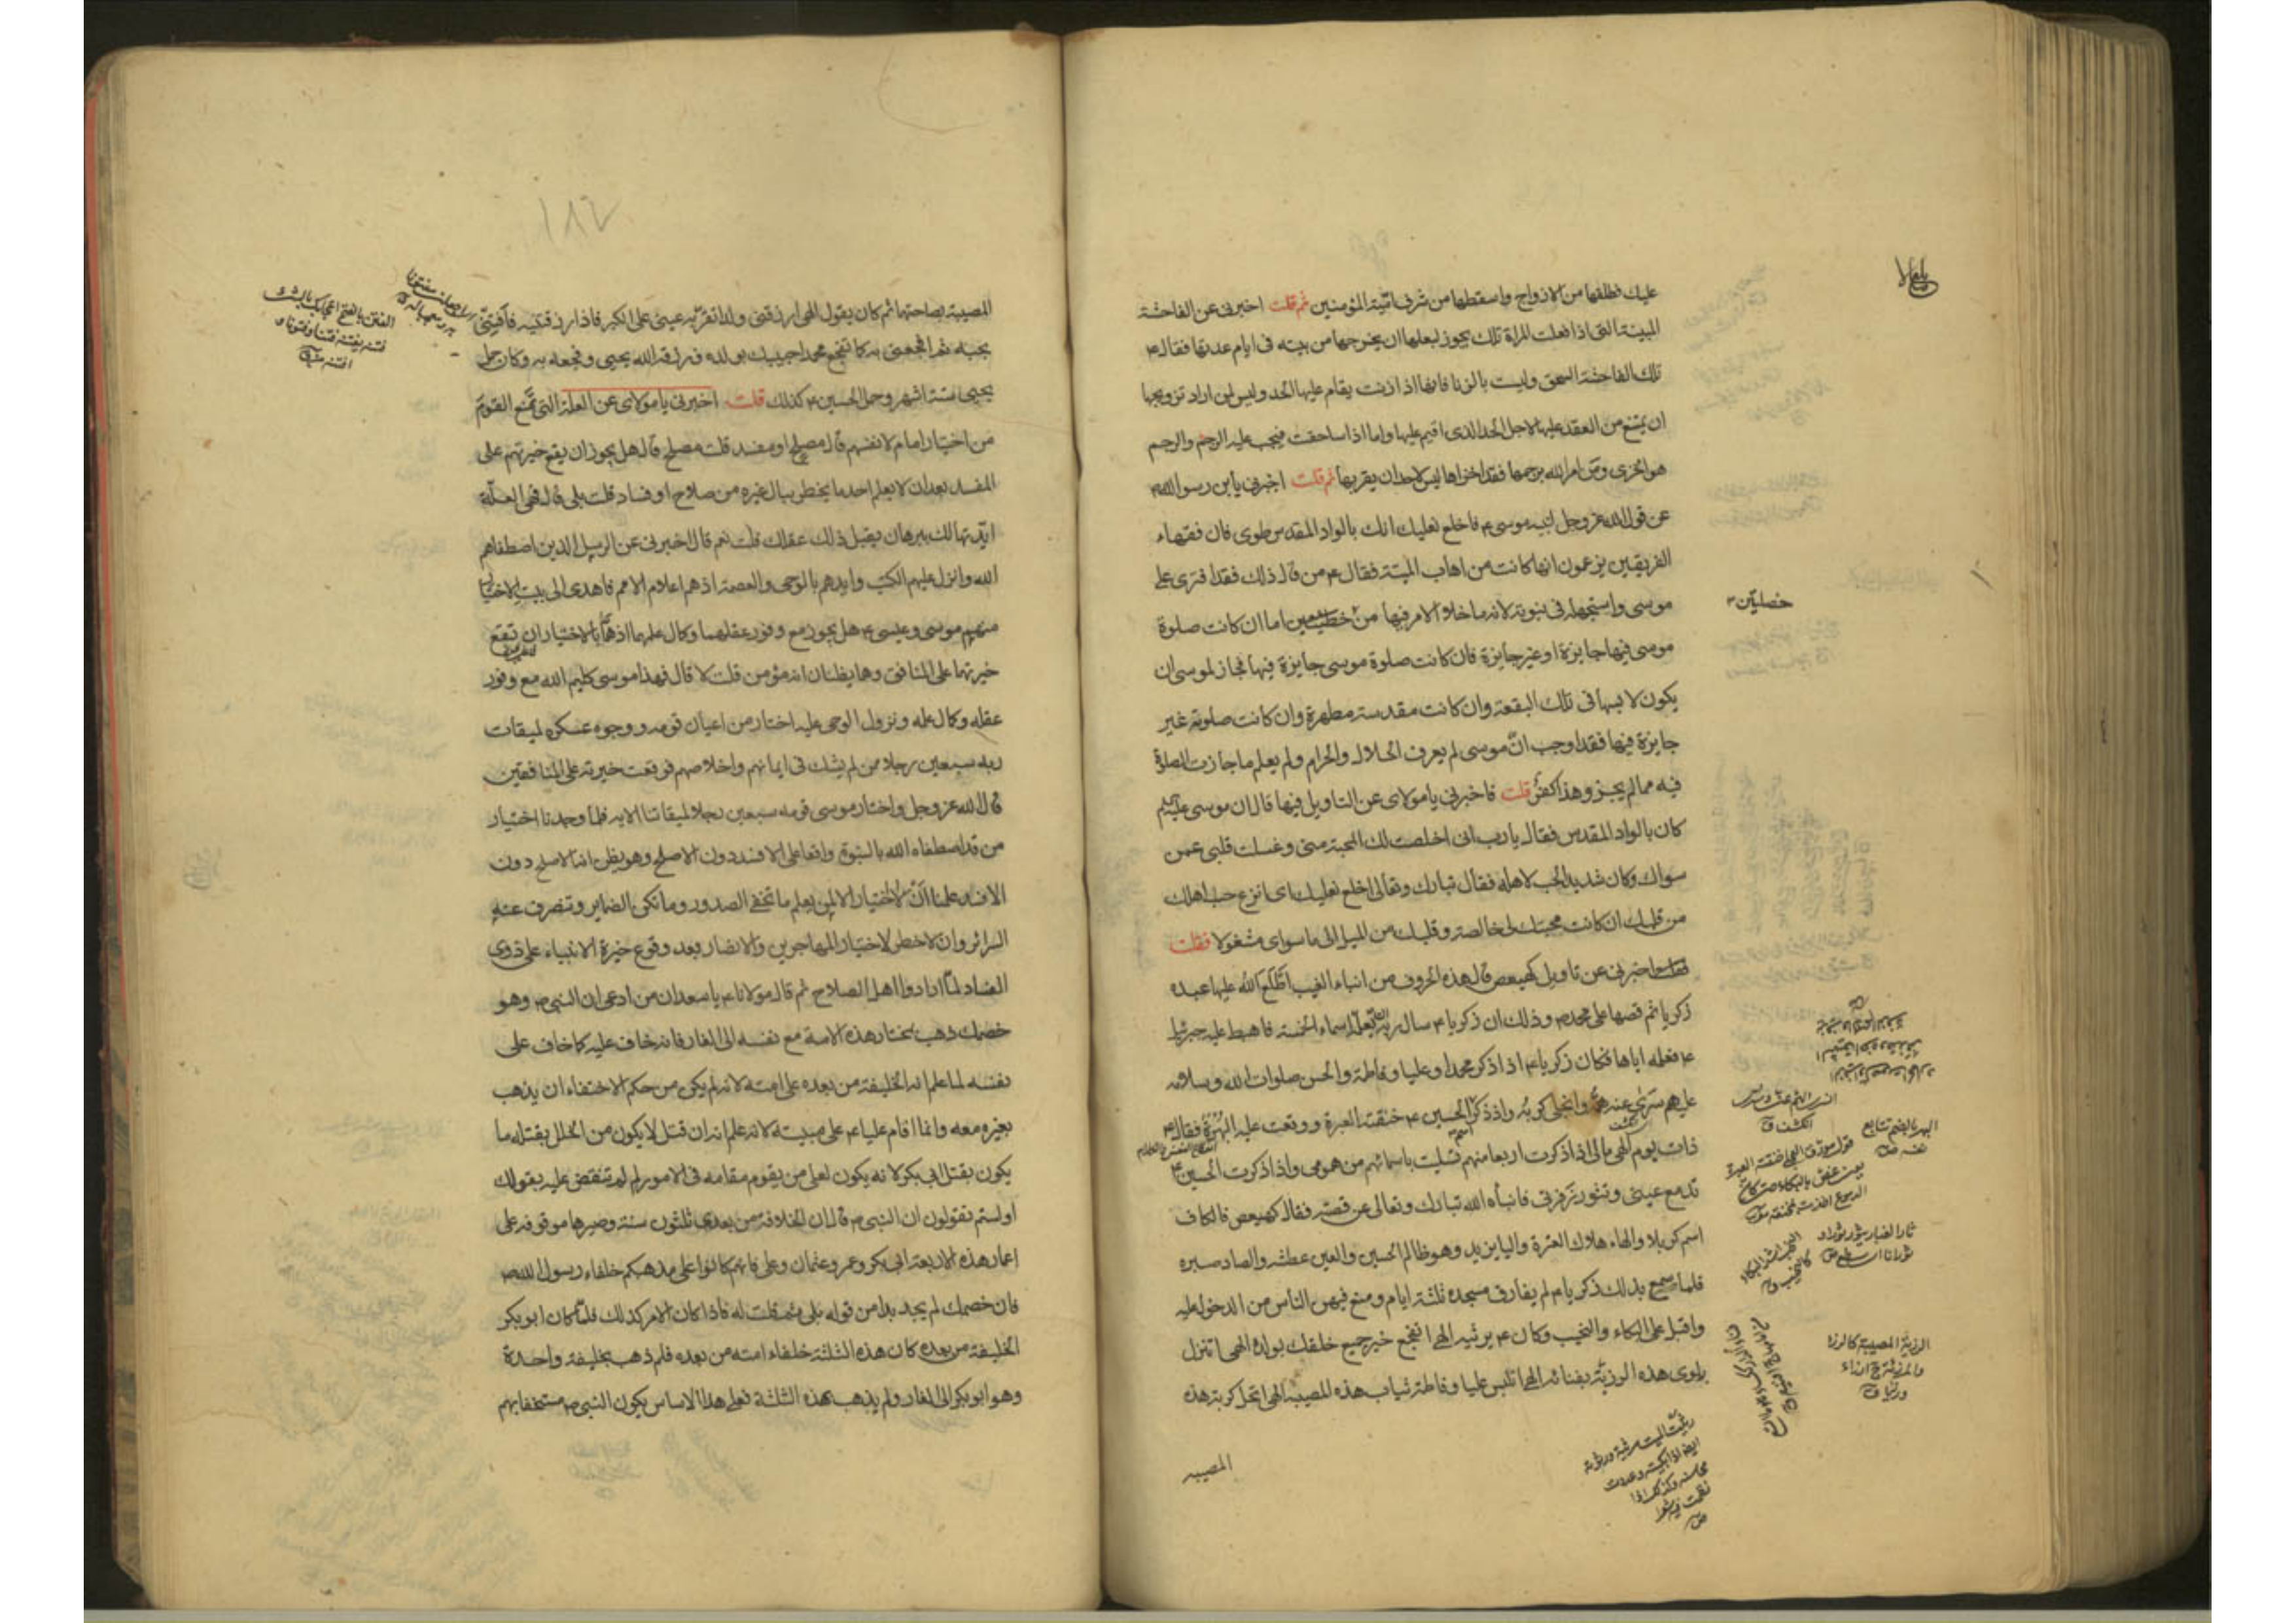 عليك فطلقها من الازواج واسقطها من شرف اميّة المؤمنين ثم قلت اخبرنى عن الفاحشة
المبينة التى اذا فعلت المراة تلك يجوز لبعلها ان يخرجها من بيته فى ايام عدتها فقال ع
تلك الفاحشة السحق وليست بالزنا فانها اذا زنت يقام عليها الحد وليس لمن اراد تزويجها
ان يمتنع من العقد عليها لاجل الحد الذى اقيم عليها واما اذا ساحقت فيجب عليه الرجم والرجم
هو الخزى ومن امر الله برجمها فقد اخزاها ليس لاحد ان يقربها ثم قلت اخبرنى يا بن رسول الله ص
عن قول الله عز وجل لنبيه موسى ع فاخلع نعليك انك بالواد المقدس طوى فان فقهاء
الفريقين يزعمون انها كانت من اهاب الميتة فقال ع من قال ذلك فقد افترى على
موسى واستجهله فى نبوته لانه ما خلا الامر فيها من خطبين اما ان كانت صلوة
موسى فيها جايزة او غير جايزة فان كانت صلوة موسى جايزة فيها فجاز لموسى ان
يكون لابسها فى تلك البقعة وان كانت مقدسة مطهرة وان كانت صلوته غير
جايزة فيها فقد اوجب انّ موسى لم يعرف الحلال والحرام ولم يعلم ما جازت الصلوة
فيه مما لم يجز وهذا كفر قلت فاخبرنى يا مولاى عن التاويل فيها قال ان موسى عليه السلم
كان بالواد المقدس فقال يا رب انى اخلصت لك المحبة منى وغسلت قلبى عمن
سواك وكان شديد الحب لاهله فقال تبارك وتعالى اخلع نعليك اى انزع حب اهلك
من قلبك ان كانت محبتك لى خالصة وقلبك من الميل الى ما سواى مشغولا فقلت
اخبرنى عن تاويل كهيعص قال هذه الحروف من انباء الغيب اطلع الله عليها عبده
زكريا ثم قصها على محمد ص وذلك ان زكريا ع سال ربه ان يعلّمه اسماء الخمسة فاهبط عليه جبرئيل
ع فعلمه اياها فكان زكريا ع اذا ذكر محمدا وعليا وفاطمة والحسن صلوات الله وسلامه
عليهم سرّى عنه همّه وانجلى كربه واذا ذكر الحسين ع خنقته العبرة ووقعت عليه البهرة فقال ع
ذات يوم الهى مالى اذا ذكرت اربعا منهم تسليت باسمائهم من همومى واذا ذكرت الحسين ع
تدمع عينى وتثور زفرتى فانبأه الله تبارك وتعالى عن قصته فقال كهيعص فالكاف
اسم كربلا والهاء هلاك العترة والياء يزيد وهو ظالم الحسين والعين عطشه والصاد صبره
فلما سمع بذلك زكريا ع لم يفارق مسجده ثلثة ايام ومنع فيهن الناس من الدخول عليه
واقبل على البكاء والنحيب وكان ع يرثيه الهى اتفجع خير جميع خلقك بولده الهى اتنزل
بلوى هذه الرزيّة بفنائه الهى اتلبس عليا وفاطمة ثياب هذه المصيبة الهى اتحل كربة هذه
المصيبه
خصلتين
السرى الهم عنه وسرى
انكشف ق
البهر بالضم تتابع
نفسه
ثار الغبار يثور ثورا
ثورانا اى سطع ص
الرزية المصيبة كالرزء
والمرزئة ج ارزاء
ورزايا ق
رثيت الميت مرثية ورثوته
ايضا اذا بكيته وعددت
محاسنه وكذلك اذا
نظمت فيه شعرا
ص
١٨٢
المصيبة بصاحتها ثم كان يقول الهى ارزقنى ولدا تقرّ به عينى على الكبر فاذا رزقتنيه فافتنّى
بحبه ثم افجعنى به كما تفجع محمدا حبيبك بولده فرزقه الله يحيى وفجعه به وكان حمل
يحيى ستة اشهر وحمل الحسين ع كذلك قلت اخبرنى يا مولاى عن العلة التى تمنع القوم
من اختيار امام لانفسهم قال مصلح او مفسد قلت مصلح قال هل يجوز ان يقع خيرتهم على
المفسد بعد ان لا يعلم احد ما يخطر ببال غيره من صلاح او فساد قلت بلى قال فهى العلّة
ايّدتها لك ببرهان يقبل ذلك عقلك قلت نعم قال اخبرنى عن الرسل الذين اصطفاهم
الله وانزل عليهم الكتب وايدهم بالوحى والعصمة اذ هم اعلام الامم فاهدى الى بيت الاختيار
منهم موسى وعيسى ع هل يجوز مع وفور عقلهما وكمال علمهما اذ همّا بالاختيار ان تقع
خيرتهما على المنافق وهما يظنان انه مؤمن قلت لا قال فهذا موسى كليم الله مع وفور
عقله وكمال علمه ونزول الوحى عليه اختار من اعيان قومه ووجوه عسكره لميقات
ربه سبعين رجلا ممن لم يشك فى ايمانهم واخلاصهم فوقعت خيرته على المنافقين
قال الله عز وجل واختار موسى قومه سبعين رجلا لميقاتنا الايه فلما وجدنا اختيار
من قد اصطفاه الله بالنبوة واقعا على الافسد دون الاصلح وهو يظن انه الاصلح دون
الافسد علمنا ان لا اختيار الا لمن يعلم ما تخفى الصدور وما تكن الضماير وتنصرف عنه
السرائر وان لا خطر لاختيار المهاجرين والانصار بعد وقوع خيرة الانبياء على ذوى
الفساد لمّا ارادوا اهل الصلاح ثم قال مولانا ع يا سعد ان من ادعى ان النبى ص وهو
خصمك ذهب بمختار هذه الامة مع نفسه الى الغار فانه خاف عليه كما خاف على
نفسه لما علم انه الخليفة من بعده على امته لانه لم يكن من حكم الاختفاء ان يذهب
بغيره معه وانما اقام عليا ع على مبيته لانه علم انه ان قتل لا يكون من الخلل بقتله ما
يكون بقتل ابى بكر لانه يكون لعلى من يقوم مقامه فى الامور لم لم تنقض عليه بقولك
اولستم تقولون ان النبى ص قال ان الخلافة من بعدى ثلثون سنة وصيرها موقوفة على
اعمار هذه الاربعة ابى بكر وعمر وعثمان وعلى فانهم كانوا على مذهبكم خلفاء رسول الله ص
فان خصمك لم يجد بدا من قوله بلى ثم قلت له فاذا كان الامر كذلك فلمّا كان ابو بكر
الخليفة من بعده كان هذه الثلثة خلفاء امته من بعده فلم ذهب بخليفة واحدة
وهو ابو بكر الى الغار ولم يذهب بهذه الثلثة فعلى هذا الاساس يكون النبى ص مستخفا بهم
الفتن بالفتح اعجابك بالشئ
فتنه يفتنه فتنا وفتونا و
افتنه ق